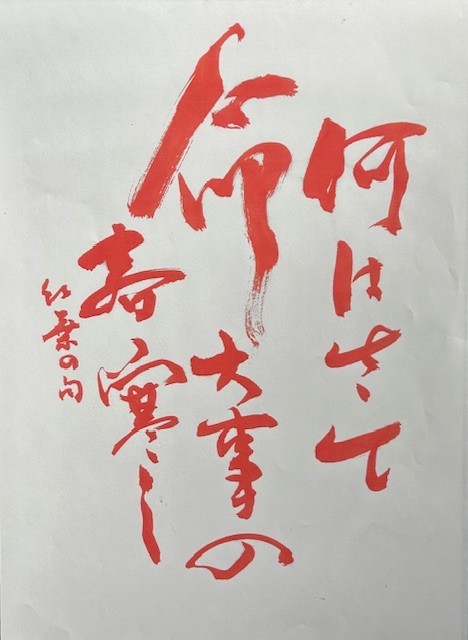 何はさて
命大事の
春寒し
紅葉の句